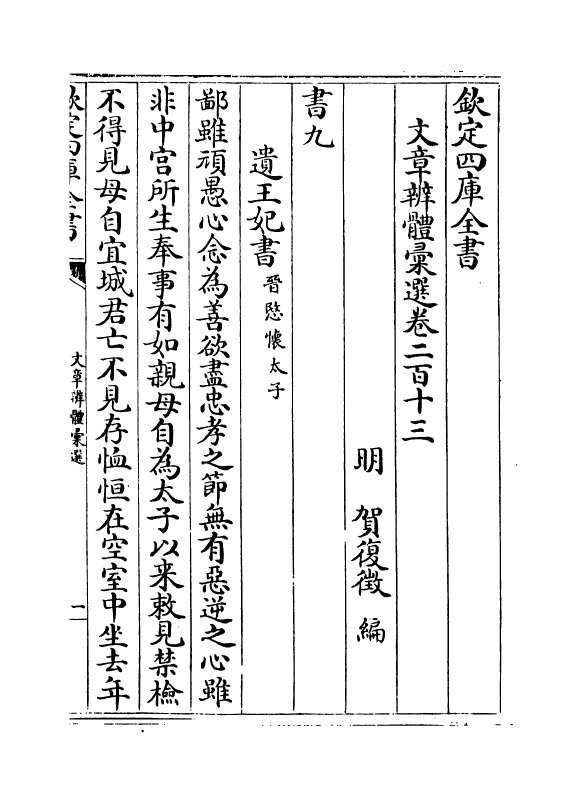 欽定四庫全書
文章辨體彚選卷二百十三
明 賀復徵 編
書九
遺王妃書 晉愍懷太子
鄙雖頑愚心念為善欲盡忠孝之節無有惡逆之心雖
非中宮所生奉事有如親母自為太子以来敕見禁檢
不得見母自宜城君亡不見存恤恒在空室中坐去年
欽定四庫全書
文章辨體彚選
一